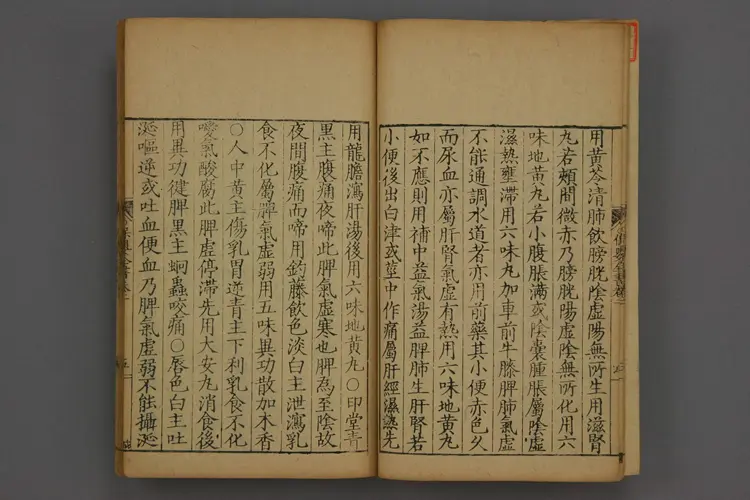 用黃芩清肺飲膀胱陰虛陽無所生用滋腎
丸若頰間微赤乃膀胱陽虛陰無所化用六
味地黃丸若小腹脹滿或陰囊腫脹屬陰虛
濕熱壅滯用六味丸加車前牛膝脾肺氣虛
不能通調水道者亦用前藥其小便赤色久
而尿血亦屬肝腎氣虛有熱用六味地黃丸
如不應則用補中益氣湯益脾肺生肝腎若
小便後出白津或莖中作痛屬肝經濕熱先
用龍膽瀉肝湯後用六味地黃丸○印堂青
黑主腹痛夜啼此脾氣虛寒也脾為至陰故
夜間腹痛而啼用鈎藤飲色淡白主泄瀉乳
食不化屬脾氣虛弱用五味異功散加木香
○人中黃主傷乳胃逆青主下利乳食不化
噯氣酸腐此脾虛停滯先用大安丸消食後
用異功健脾黑主蛔蟲咬痛○唇色白主吐
涎嘔逆或吐血便血乃脾氣虛弱不能攝涎